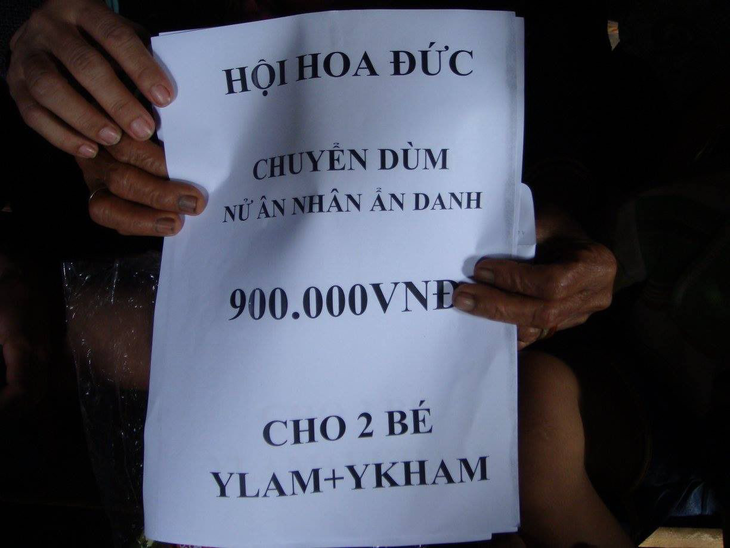 HỘI HOA ĐỨC
CHUYỄN DÙM
NỬ ÂN NHÂN ẨN DANH
900.000VNĐ
CHO 2 BÉ
YLAM+YKHAM